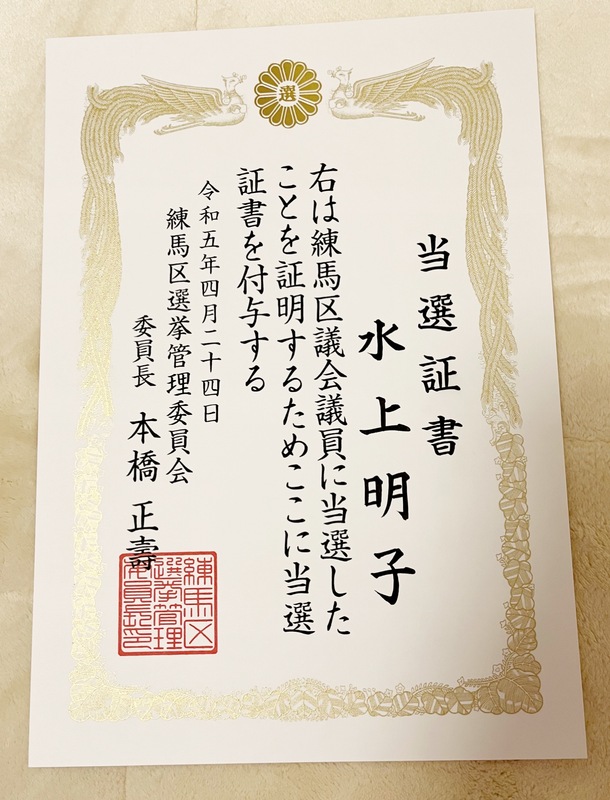 選
当選証書
水上明子
右は練馬区議会議員に当選した
ことを証明するためここに当選
証書を付与する
令和五年四月二十四日
練馬区選挙管理委員会
委員長 本橋正壽
練馬区
選挙管理
委員長印